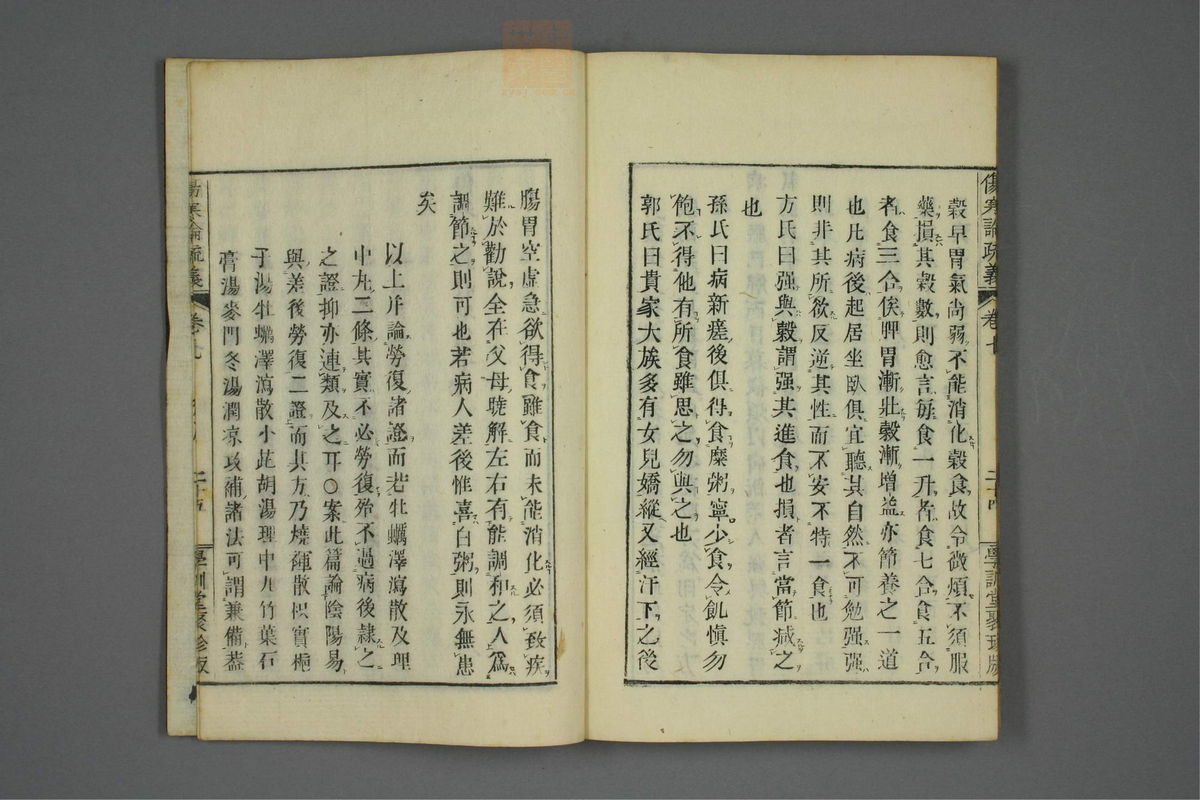 傷寒論疏義 卷七 二十四 學訓堂聚珍版
穀早胃氣尚弱不能消化穀食故令微煩不須服
藥損其穀數則愈言每食一升者食七合食五合
者食三合俟脾胃漸壯穀漸增益亦節養之一道
也凡病後起居坐臥俱宜聽其自然不可勉强强
則非其所欲反逆其性而不安不特一食也
方氏曰强與穀謂强其進食也損者言當節減之
也
孫氏曰病新瘥後俱得食糜粥寧少食令飢愼勿
飽不得他有所食雖思之勿與之也
郭氏曰貴家大族多有女兒嬌縱又經汗下之後
腸胃空虛急欲得食雖食而未能消化必須致疾
難於勸說全在父母曉解左右有能調和之人爲
調節之則可也若病人差後惟喜白粥則永無患
矣
以上幷論勞復諸證而若牡蠣澤瀉散及理
中丸二條其實不必勞復殆不過病後隷之
之證抑亦連類及之耳○案此篇論陰陽易
與差後勞復二證而其方乃燒裩散枳實梔
子湯牡蠣澤瀉散小茈胡湯理中丸竹葉石
膏湯麥門冬湯潤凉攻補諸法可謂兼備葢
傷寒論疏義 卷七 二十五 學訓堂聚珍版